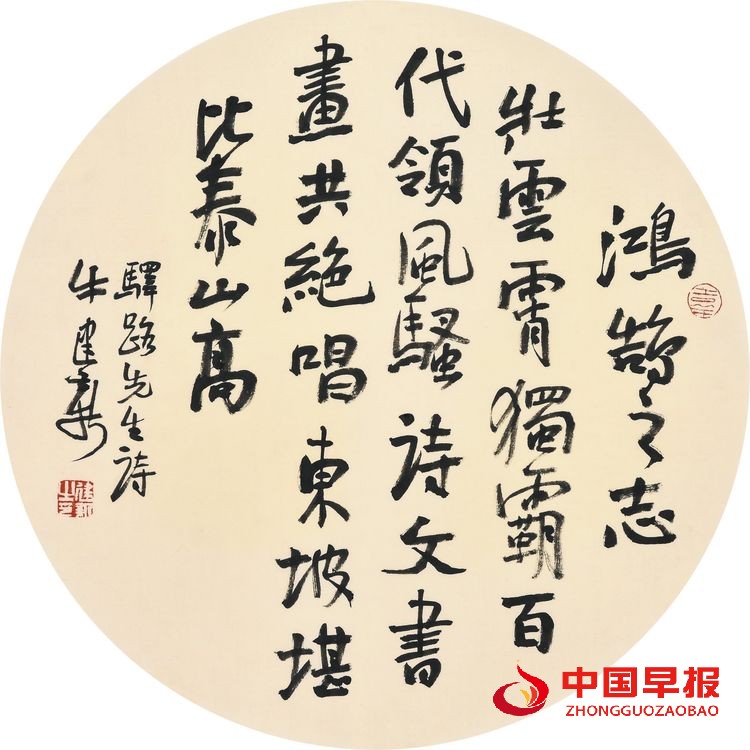 鴻鵠之志
壯雲霄獨霸百
代領風騷詩文書
畫共絕唱東坡堪
比泰山高
驛路先生詩
牛建
中国早报
ZHONGGUOZAOBAO